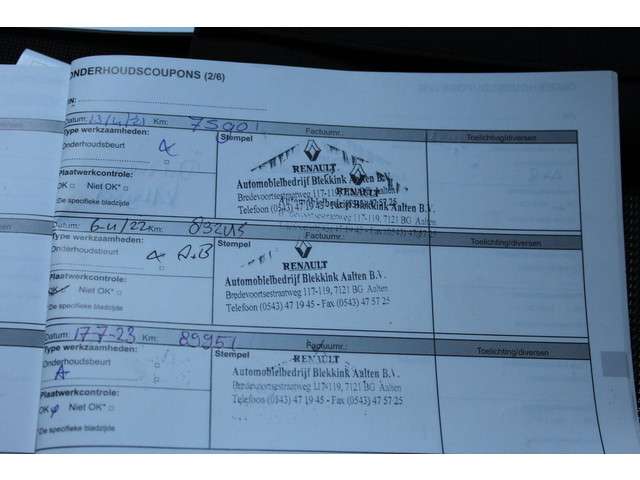 ONDERHOUDSCOUPONS (2/6)
Datum: Km: 75901
Type werkzaamheden:
Onderhoudsbeurt
Plaatwerkcontrole:
OK □ Niet OK* □
*De specifieke bladzijde
Stempel Factuurnr.: Toelichting/diversen
RENAULT
Automobielbedrijf Blekkink Aalten B.V.
Bredevoortsestraatweg 117-119, 7121 BG Aalten
Telefoon (0543) 47 19 45 - Fax (0543) 47 57 25
Datum: 6-4/22 Km: 83245
Type werkzaamheden:
A.B
Plaatwerkcontrole:
OK Niet OK* □
*De specifieke bladzijde
Stempel Factuurnr.: Toelichting/diversen
RENAULT
Automobielbedrijf Blekkink Aalten B.V.
Bredevoortsestraatweg 117-119, 7121 BG Aalten
Telefoon (0543) 47 19 45 - Fax (0543) 47 57 25
Datum: 17-7-23 Km: 89951
Type werkzaamheden:
Onderhoudsbeurt
A
Plaatwerkcontrole:
OK Niet OK* □
*De specifieke bladzijde
Stempel Factuurnr.: Toelichting/diversen
RENAULT
Automobielbedrijf Blekkink Aalten B.V.
Bredevoortsestraatweg 117-119, 7121 BG Aalten
Telefoon (0543) 47 19 45 - Fax (0543) 47 57 25